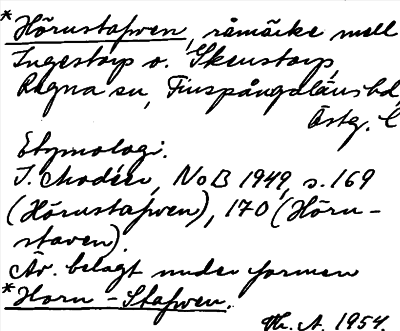 *Hörustafwen, råmärke mell
Ingestorp o. Skenstorp,
Regna sn, Finspångaläns hd,
Östg. l
Etymologi.
I. Modéer, NoB 1949, s. 169
(Hörustafwen), 170 (Höru-
staven).
Äv. belagt under formen
*Horn-Stafwen.
Th. A. 1954.